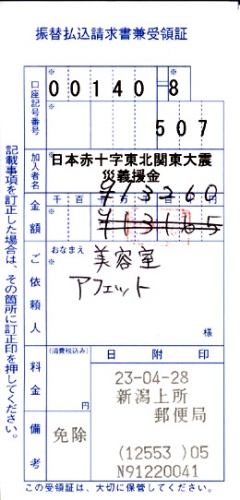 振替払込請求書兼受領証
口座記号番号
00140-8
507
加入者名
日本赤十字東北関東大震
災義援金
金額
千 百 十 万 千 百 十 円
¥13260
¥13165
ご依頼人
おなまえ
※
美容室
アフェット
様
料金
(消費税込み)
円
日附印
23-04-28
新潟上所
郵便局
(12553 )05
N91220041
備考
免除
記載事項を訂正した場合は、その箇所に訂正印を押してください。
この受領証は、大切に保管してください。